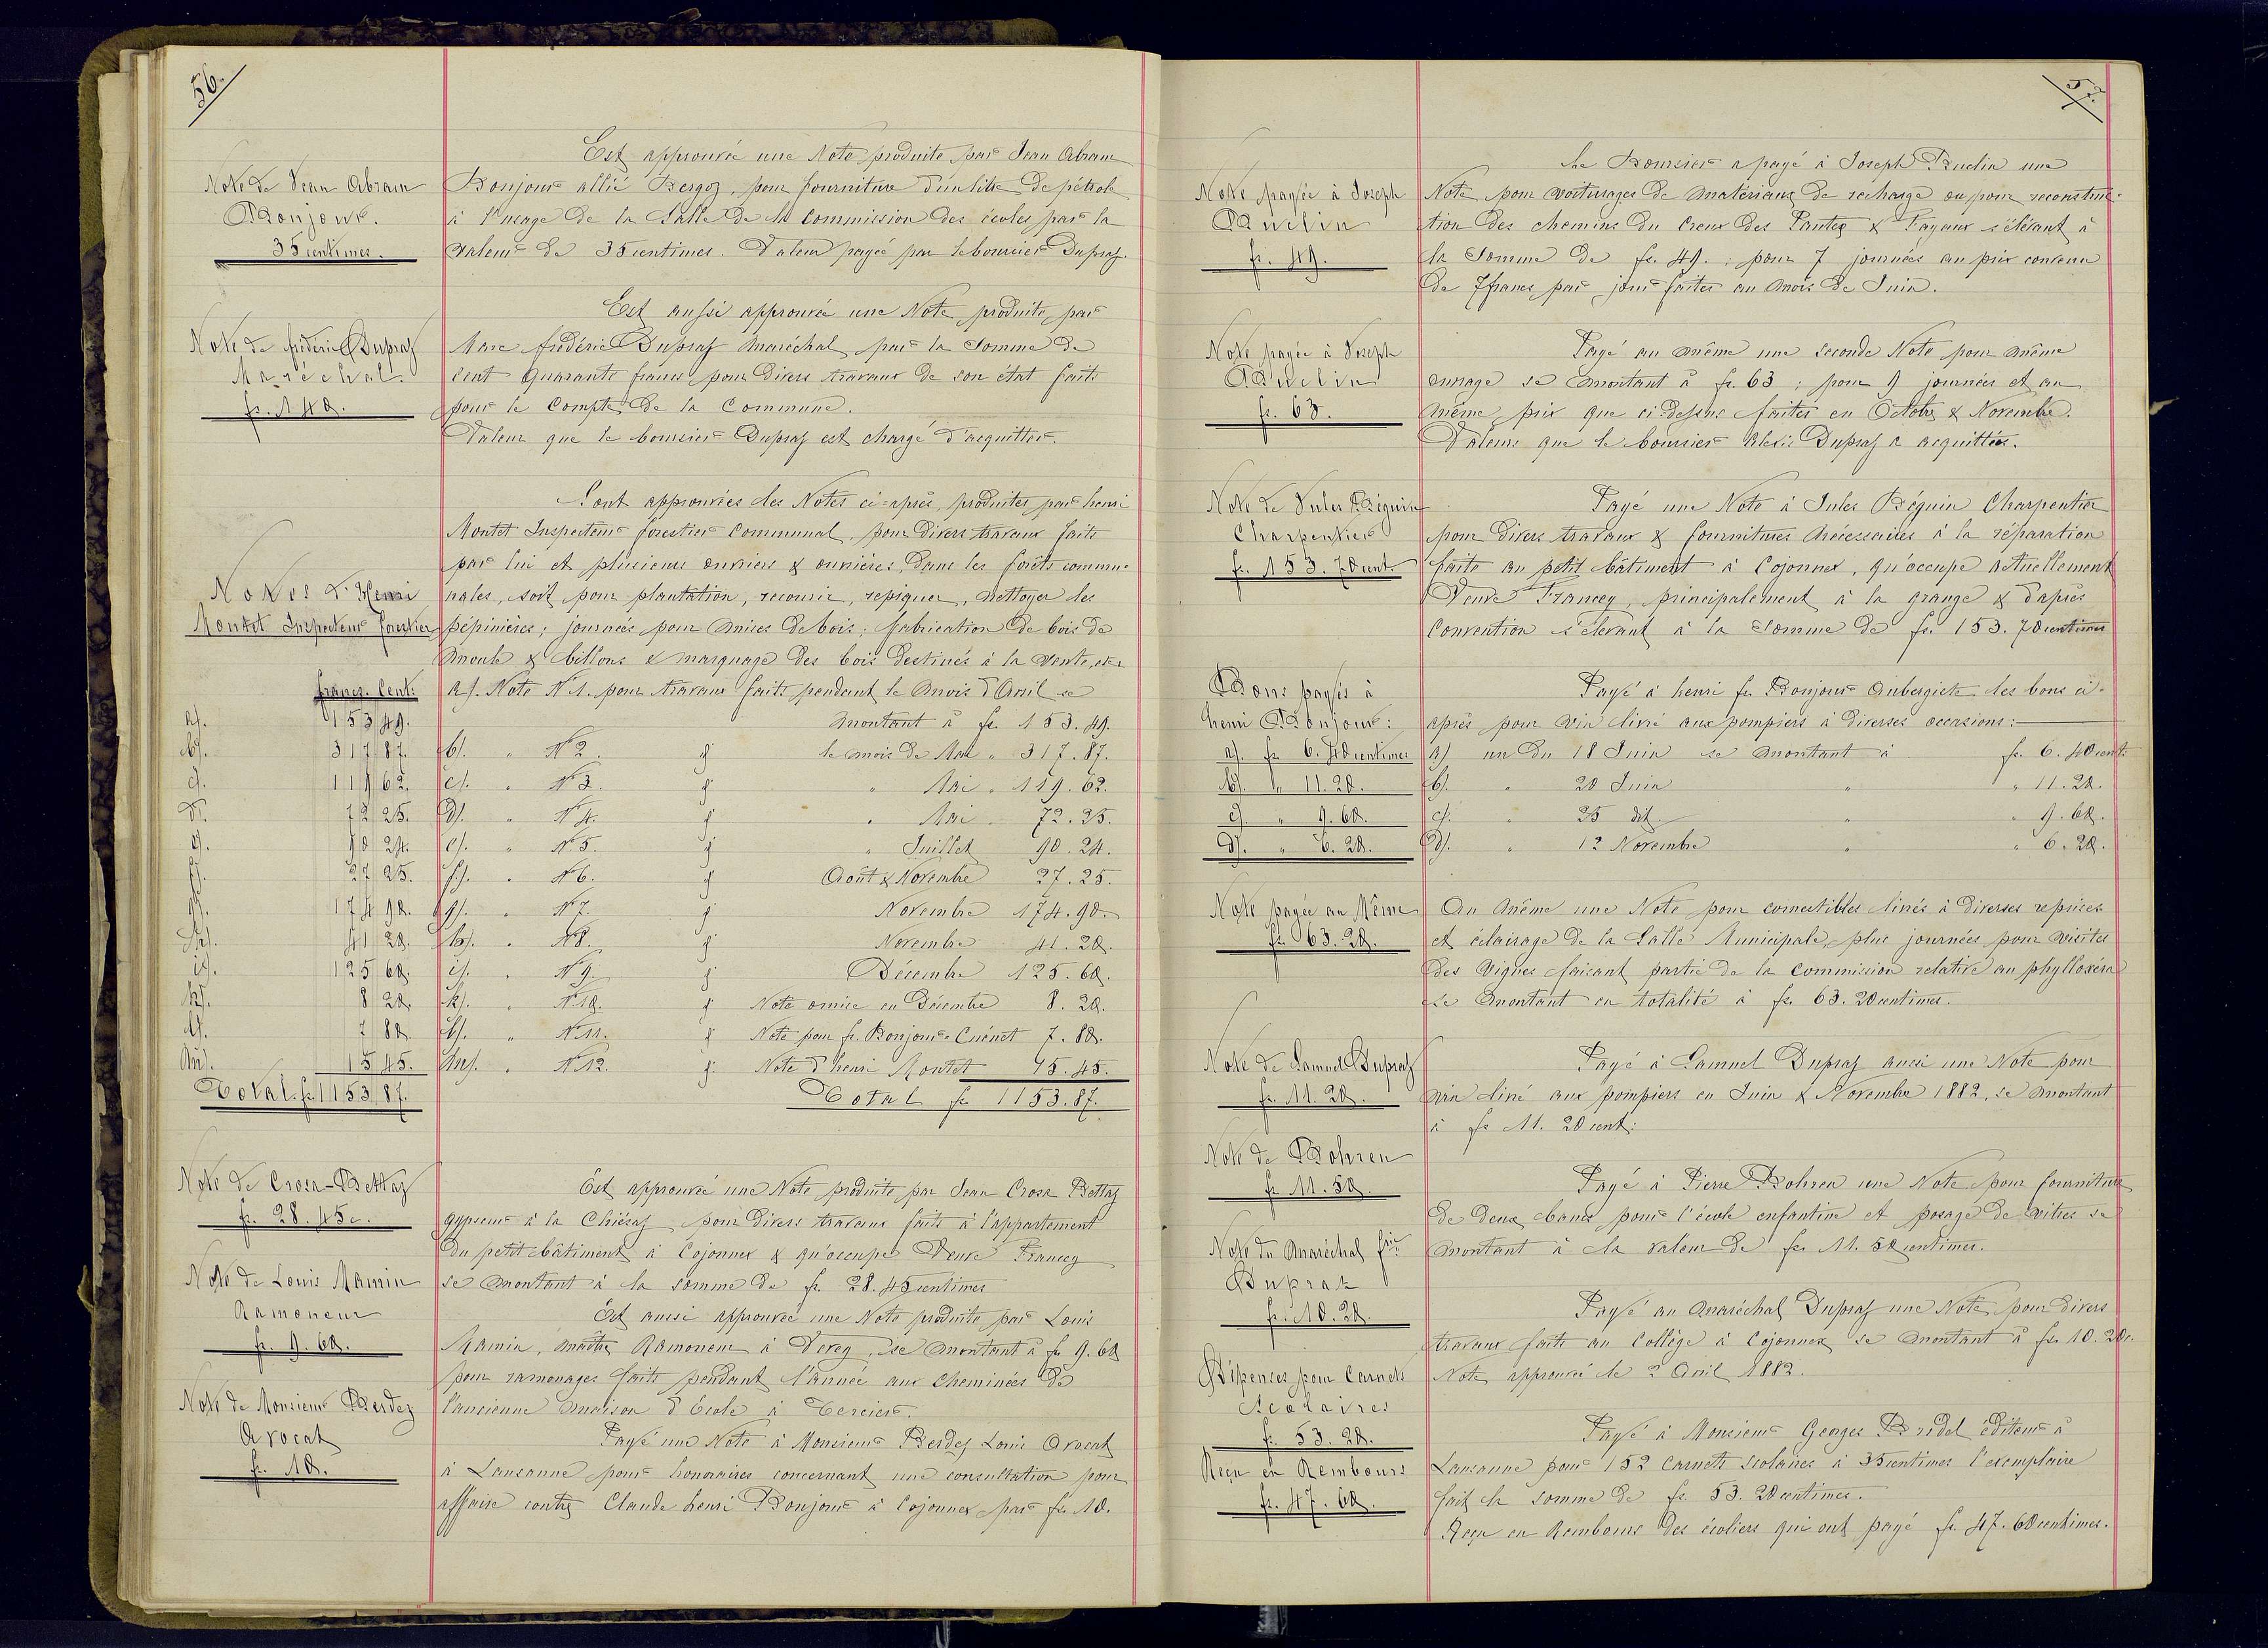 56.
Est approuvée une Note produite par Jean Abram
Note de Jean Abram
Bonjour.
35 centimes.
Bonjour allié Bergoz, pour fourniture d'un litre de pétrole
à l'usage de la Salle de la Commission des écoles par la
valeur de 35 centimes. Valeur payée par le boursier Dupraz.
Est aussi approuvée une Note produite par
Note de frédéric Dupraz
Maréchal.
fr. 140.
Marc frédéric Dupraz Maréchal par la Somme de
cent quarante francs pour divers travaux de son état faits
pour le Compte de la Commune.
Valeur que le boursier Dupraz est chargé d'acquitter.
Sont approuvées les Notes ci-après, produites par henri
Notes d'Henri
Montet Inspecteur forestier
Montet Inspecteur forestier Communal, pour divers travaux faits
par lui et plusieurs ouvriers & ouvrières, dans les forêts commu-
nales, soit pour plantation, recouvrir, repiquer, Nettoyer les
pépinières; journées pour mises de bois; fabrication de bois de
moule & billons & marquage des bois destinés à la vente, etc
francs. Cent:
a). 153 49.
b). 317 87.
c). 119 62.
d). 72 25.
e). 90 24.
f). 27 25.
g). 174 90.
h). 41 20.
i). 125 60.
k). 8 20.
l). 7 80.
m). 15 45.
Total. fr. 1153 87.
a). Note N°1. pour travaux faits pendant le mois d'Avril se
montant à fr. 153.49.
b). " N°2. " le mois de Mai " 317.87.
c). " N°3. " " Mai " 119.62.
d). " N°4. " " Mai 72.25.
e). " N°5. " " Juillet 90.24.
f). " N°6. " Août & Novembre 27.25.
g). " N°7. " Novembre 174.90.
h). " N°8. " Novembre 41.20.
i). " N°9. " Décembre 125.60.
k). " N°10. " Note omise en Décembre 8.20.
l). " N°11. " Note pour fr. Bonjour-Cuénet 7.80.
m). " N°12. " Note d'henri Montet 15.45.
Total fr 1153.87.
Note de Crosa-Bettaz
fr. 28. 45 c.
Est approuvée une Note produite par Jean Crosa Bettaz
gypseur à la Chiésaz pour divers travaux faits à l'appartement
du petit bâtiment à Cojonnex & qu'occupe Veuve Francey
se montant à la somme de fr. 28. 45 centimes
Note de Louis Mamin
Ramoneur
fr. 9. 60.
Est aussi approuvée une Note produite par Louis
Mamin, maître Ramoneur à Vevey, se montant à fr 9.60
pour ramonages faits pendant l'année aux cheminées de
l'ancienne maison d'école à Tercier.
Note de Monsieur Berdez
Avocat
fr. 10.
Payé une Note à Monsieur Berdez Louis Avocat
à Lausanne pour honoraires concernant une consultation pour
affaire contre Claude henri Bonjour à Cojonnex par fr. 10.
57.
Le Boursier a payé à Joseph Buclin une
Note payée à Joseph
Buclin
fr. 49.
Note pour voiturages de matériaux de recharge ou pour reconstruc-
tion des chemins du Creux des & Fayaux s'élevant à
la Somme de fr. 49.; pour 7 journées au prix convenu
de 7 francs par jour faites au mois de Juin.
Note payée à Joseph
Buclin
fr. 63.
Payé au même une seconde Note pour même
ouvrage se montant à fr. 63; pour 9 journées et au
même prix que ci-dessus faites en Octobre & Novembre.
Valeurs que le boursier Alexis Dupraz a acquittées.
Note de Jules Béguin
Charpentier
fr. 153. 70 cent.
Payé une Note à Jules Béguin Charpentier
pour divers travaux & fournitures nécessaires à la réparation
faite au petit bâtiment à Cojonnex, qu'occupe actuellement
Veuve Francey, principalement à la grange & d'après
Convention s'élevant à la Somme de fr. 153. 70 centimes
Bons payés à
henri Bonjour:
a). fr 6. 40 centimes
b). " 11.20.
c). " 9.60.
d). " 6.20.
Payé à henri fr. Bonjour Aubergiste les bons ci-
après pour vin livré aux pompiers à diverses occasions:
a) un du 18 Juin se montant à fr. 6. 40 cent:
b). " 20 Juin " " 11.20.
c). " 25 dit. " " 9.60.
d). " 12 Novembre " " 6.20.
Note payée au Même
fr. 63.20.
Au même une Note pour comestibles livrés à diverses reprises
et éclairage de la Salle Municipale, plus journées pour visites
des vignes faisant partie de la Commission relative au phylloxéra
se montant en totalité à fr. 63. 20 centimes.
Note de Samuel Dupraz
fr. 11.20.
Payé à Samuel Dupraz aussi une Note pour
vin livré aux pompiers en Juin & Novembre 1882, se montant
à fr 11. 20 cent:
Note de Bohren
fr 11.50.
Payé à Pierre Bohren une Note pour fourniture
de deux bancs pour l'école enfantine et posage de vitres se
montant à la valeur de fr. 11. 50 centimes.
Note du Maréchal fric
Dupraz
fr. 10.20.
Payé au Maréchal Dupraz une Note pour divers
travaux faits au Collège à Cojonnex se montant à fr. 10. 20 c.
Note approuvée le 2 Avril 1882.
Dépenses pour Carnets
Scolaires
fr. 53.20.
Reçu en Rembours
fr. 47.60.
Payé à Monsieur Georges Bridel éditeur à
Lausanne pour 152 Carnets scolaires à 35 centimes l'exemplaire
fait la somme de fr. 53. 20 centimes.
Reçu en Rembours des écoliers qui ont payé fr. 47. 60 centimes.